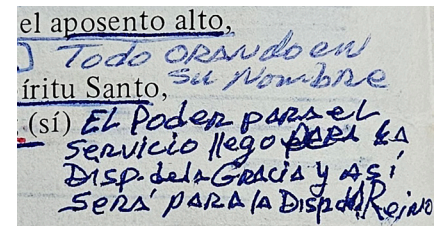 el aposento alto,
Todo ORANdo en
su Nombre
íritu Santo,
(sí) EL PodeR paRa el
seRvicio llego paRa LA
Disp. de la GRAciA y Así
SeRá paRA lA Disp del ReiNo